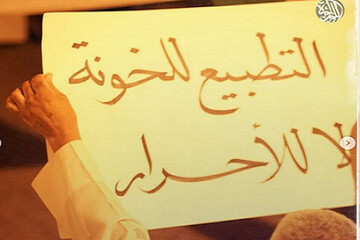 التطبيع للخونة
لا للأحرار